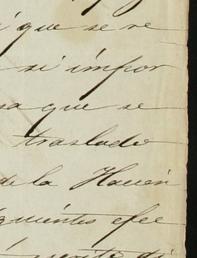 i que se re
si impor
sa que se
traslado
de la Haven
iguientes efec